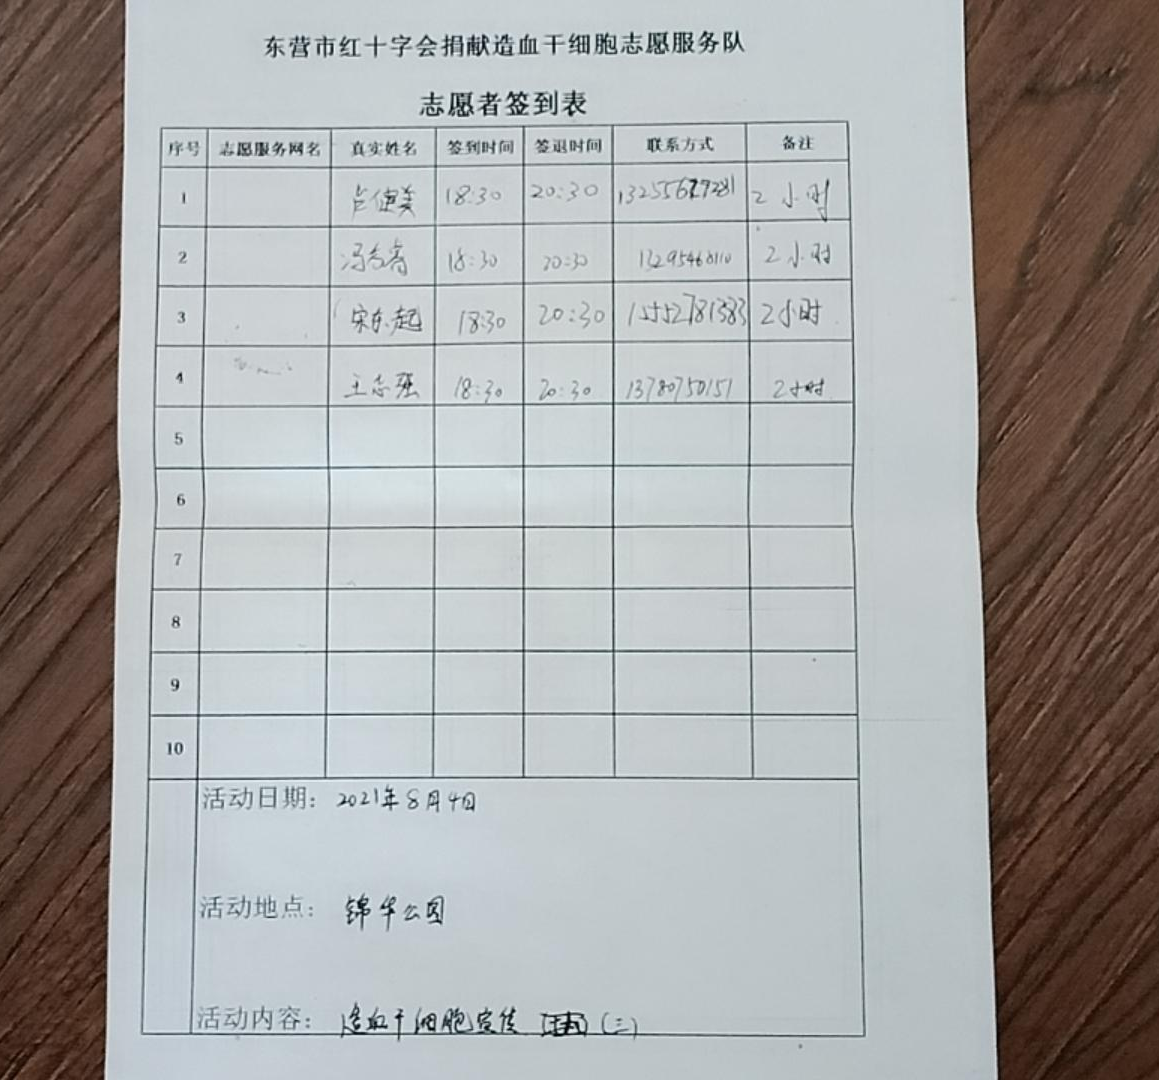 东营市红十字会捐献造血干细胞志愿服务队
志愿者签到表
序号 志愿服务网名 真实姓名 签到时间 签退时间 联系方式 备注
1 18:30 20:30 2小时
2 18:30 20:30 13295468110 2小时
3 宋东起 18:30 20:30 15552781383 2小时
4 王志强 18:30 20:30 13780750151 2小时
5
6
7
8
9
10
活动日期: 2021年8月4日
活动地点: 锦华公园
活动内容: 造血干细胞宣传 (三)